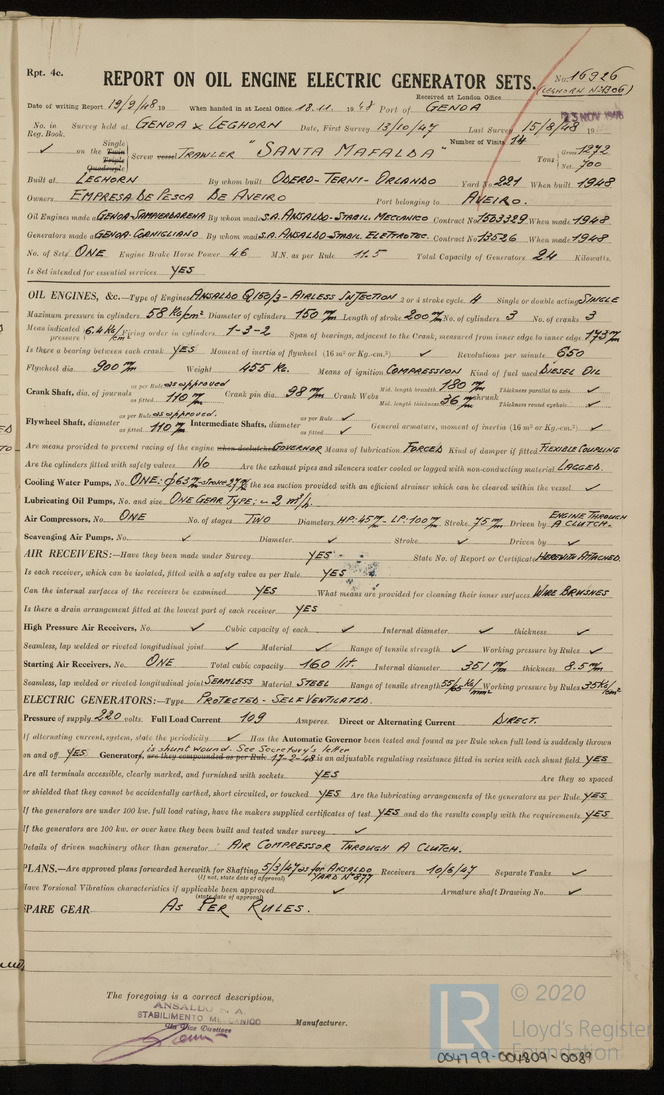 Rpt. 4c.
REPORT ON OIL ENGINE ELECTRIC GENERATOR SETS.
No. 16926
(LEGHORN No 1306)
Received at London Office
23 NOV 1948
Date of writing Report 19/9/48 19 When handed in at Local Office 13.11. 1948 Port of GENOA
No. in Reg. Book. Survey held at GENOA & LEGHORN Date, First Survey 13/10/47 Last Survey 15/8/48 19
Number of Visits 14
✓ on the Single Twin Triple Quadruple Screw vessel TRAWLER "SANTA MAFALDA" Tons Gross 1272 Net 700
Built at LEGHORN By whom built ODERO-TERNI-ORLANDO Yard No. 221 When built 1948
Owners EMPRESA DE PESCA DE AVEIRO Port belonging to AVEIRO.
Oil Engines made at GENOA-SAMPIERDARENA By whom made S.A. ANSALDO-STABIL. MECCANICO Contract No. 1503329 When made 1948
Generators made at GENOA-CORNIGLIANO By whom made S.A. ANSALDO-STABIL ELETTROTEC. Contract No. 13526 When made 1948
No. of Sets ONE Engine Brake Horse Power 46 M.N. as per Rule 11.5 Total Capacity of Generators 24 Kilowatts.
Is Set intended for essential services YES
OIL ENGINES, &c.—Type of Engines ANSALDO Q150/3-AIRLESS INJECTION 2 or 4 stroke cycle 4 Single or double acting SINGLE
Maximum pressure in cylinders 58 Kg/cm² Diameter of cylinders 150 m/m Length of stroke 200 m/m No. of cylinders 3 No. of cranks 3
Mean indicated pressure 6.4 Kg/cm² Firing order in cylinders 1-3-2 Span of bearings, adjacent to the Crank, measured from inner edge to inner edge 173 m/m
Is there a bearing between each crank YES Moment of inertia of flywheel (16 m² or Kg.-cm.²) ✓ Revolutions per minute 650
Flywheel dia. 900 m/m Weight 455 Kg. Means of ignition COMPRESSION Kind of fuel used DIESEL OIL
Crank Shaft, dia. of journals as per Rule as approved as fitted 110 m/m Crank pin dia. 98 m/m Crank Webs Mid. length breadth 180 m/m Mid. length thickness 36 m/m shrunk Thickness parallel to axis ✓ Thickness round eyehole ✓
Flywheel Shaft, diameter as per Rule as approved. as fitted 110 m/m Intermediate Shafts, diameter as per Rule ✓ as fitted ✓ General armature, moment of inertia (16 m² or Kg.-cm.²) ✓
Are means provided to prevent racing of the engine when declutched GOVERNOR Means of lubrication FORCED Kind of damper if fitted FLEXIBLE COUPLING
Are the cylinders fitted with safety valves NO Are the exhaust pipes and silencers water cooled or lagged with non-conducting material LAGGED.
Cooling Water Pumps, No. ONE: ϕ 65 m/m-stroke 27 m/m the sea suction provided with an efficient strainer which can be cleared within the vessel ✓
Lubricating Oil Pumps, No. and size ONE GEAR TYPE: ~ 2 m³/h.
Air Compressors, No. ONE No. of stages TWO Diameters HP. 45 m/m - LP. 100 m/m Stroke 75 m/m Driven by ENGINE THROUGH A CLUTCH.
Scavenging Air Pumps, No. ✓ Diameter ✓ Stroke ✓ Driven by ✓
AIR RECEIVERS:—Have they been made under Survey YES - State No. of Report or Certificate HEREWITH ATTACHED.
Is each receiver, which can be isolated, fitted with a safety valve as per Rule YES
Can the internal surfaces of the receivers be examined YES What means are provided for cleaning their inner surfaces WIRE BRUSHES
Is there a drain arrangement fitted at the lowest part of each receiver YES
High Pressure Air Receivers, No. ✓ Cubic capacity of each ✓ Internal diameter ✓ thickness ✓
Seamless, lap welded or riveted longitudinal joint ✓ Material ✓ Range of tensile strength ✓ Working pressure by Rules ✓
Starting Air Receivers, No. ONE Total cubic capacity 160 lit. Internal diameter 351 m/m thickness 8.5 m/m
Seamless, lap welded or riveted longitudinal joint SEAMLESS Material STEEL Range of tensile strength 55/65 Kg/mm² Working pressure by Rules 35 Kg/cm²
ELECTRIC GENERATORS:—Type PROTECTED-SELF VENTILATED.
Pressure of supply 220 volts. Full Load Current 109 Amperes. Direct or Alternating Current DIRECT.
If alternating current, system, state the periodicity ✓ Has the Automatic Governor been tested and found as per Rule when full load is suddenly thrown
is shunt wound. See Secretary's letter
on and off YES Generators, are they compounded as per Rule 17-2-48 is an adjustable regulating resistance fitted in series with each shunt field YES
Are all terminals accessible, clearly marked, and furnished with sockets YES Are they so spaced
or shielded that they cannot be accidentally earthed, short circuited, or touched YES Are the lubricating arrangements of the generators as per Rule YES
If the generators are under 100 kw. full load rating, have the makers supplied certificates of test YES and do the results comply with the requirements YES
If the generators are 100 kw. or over have they been built and tested under survey ✓
Details of driven machinery other than generator AIR COMPRESSOR THROUGH A CLUTCH.
PLANS.—Are approved plans forwarded herewith for Shafting 5/3/47 as for ANSALDO YARD No 877 Receivers 10/6/47 Separate Tanks ✓
(If not, state date of approval)
Have Torsional Vibration characteristics if applicable been approved ✓ Armature shaft Drawing No. ✓
(state date of approval)
SPARE GEAR AS PER RULES.
The foregoing is a correct description,
ANSALDO S. A.
STABILIMENTO MECCANICO
Un Vice Direttore
Manufacturer.
LR © 2020
Lloyd's Register
Foundation
004799-004809-0089